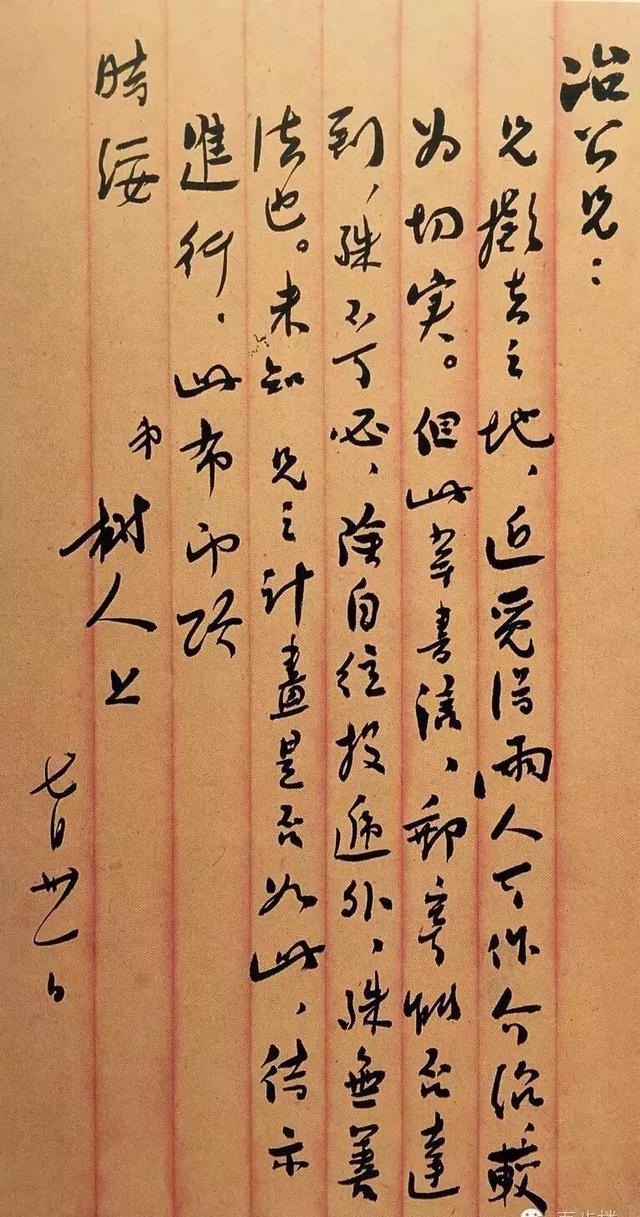 冶公兄：
兄擬去之地，近覓得兩人可作介紹，較
為切实。但此等書信，郵寄能否達
到，殊不可必，除自往投遞外，殊無善
法也。未知 兄之計畫是否如此，待示
進行，此布即頌
時綏
弟 樹人 上
七月卅一日